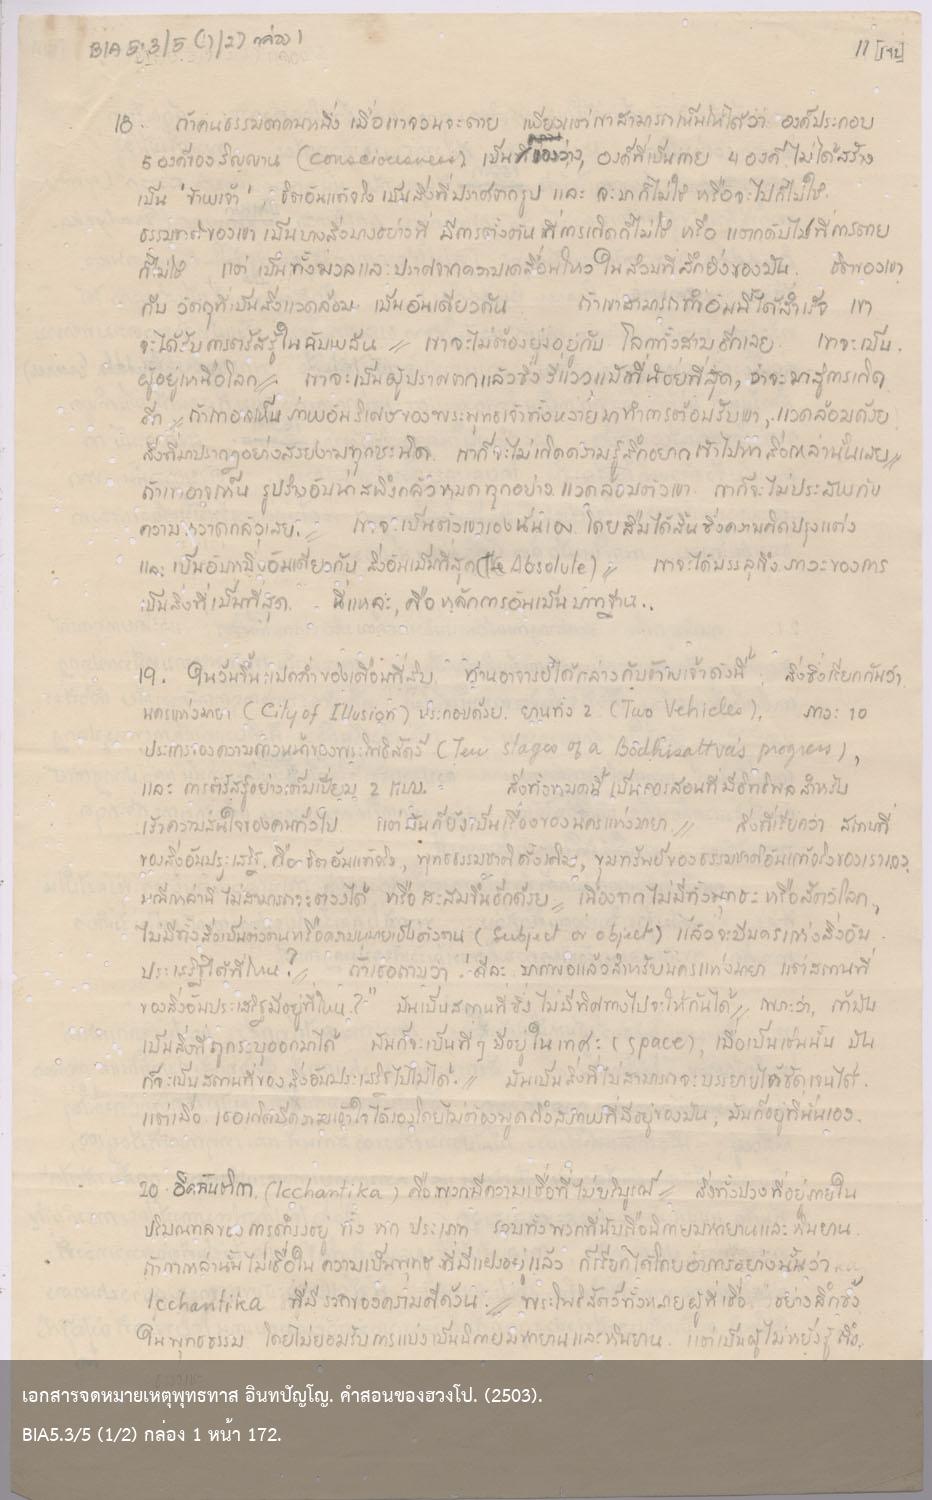 BIA 5.3/5 (1/2) กล่อง 1
11
18. ถ้าคนธรรมดาคนหนึ่ง เมื่อเขาจวนจะตาย เพียงแต่เขาสามารถเห็นให้ได้ว่า องค์ประกอบ
5 องค์ของวิญญาณ (Consciousness) เป็นของว่าง, องค์ที่เป็นกาย 4 องค์ ไม่ได้สร้าง
เป็น "ข้าพเจ้า", จิตอันแท้จริง เป็นสิ่งที่ปราศจากรูป และ จะมาก็ไม่ใช่ หรือจะไปก็ไม่ใช่.
ธรรมชาติของเขา เป็นบางสิ่งบางอย่างที่ มีการตั้งต้น ที่การเกิดก็ไม่ใช่ หรือ แตกดับไปที่การตาย
ก็ไม่ใช่ แต่ เป็นทั้งมวลและปราศจากความเคลื่อนไหว ในส่วนที่ลึกยิ่งของมัน. จิตของเขา
กับ วัตถุที่เป็นสิ่งแวดล้อม เป็นอันเดียวกัน ถ้าเขาสามารถทำอันนี้ได้สำเร็จ เขา
จะได้รับการตรัสรู้ในฉับพลัน // เขาจะไม่ต้องยุ่งอยู่กับ โลกทั้งสามอีกเลย. เขาจะเป็น
ผู้อยู่เหนือโลก // เขาจะเป็นผู้ปราศจากแล้วซึ่ง วี่แววแม้ที่น้อยที่สุด, ว่าจะมาสู่การเกิด
อีก // ถ้าเขาอาจเห็น ภาพอันวิเศษของพระพุทธเจ้าทั้งหลาย มาทำการต้อนรับเขา, แวดล้อมด้วย
สิ่งที่มาปรากฏอย่างสวยงามทุกชนิด. เขาก็จะไม่เกิดความรู้สึกอยากเข้าไปหาสิ่งเหล่านั้นเลย //
ถ้าเขาอาจเห็น รูปร่างอันน่าสพึงกลัวหมดทุกอย่าง แวดล้อมตัวเขา เขาก็จะไม่ประสพกับ
ความหวาดกลัวเลย. // เขาจะเป็นตัวเขาเองนั่นเอง โดยลืมได้สิ้น ซึ่งความคิดปรุงแต่ง
และ เป็นอันหนึ่งอันเดียวกับ สิ่งอันเป็นที่สุด (The Absolute) // เขาจะได้บรรลุถึง ภาวะของการ
เป็นสิ่งที่เป็นที่สุด. นี่แหละ, คือ หลักการอันเป็นรากฐาน..
19. ในวันขึ้นแปดค่ำของเดือนที่สิบ ท่านอาจารย์ได้กล่าวกับข้าพเจ้าดังนี้ : สิ่งซึ่งเรียกกันว่า
นครแห่งมายา (City of Illusion) ประกอบด้วย. ยานทั้ง 2 (Two Vehicles), ภาวะ 10
ประการของความก้าวหน้าของพระโพธิสัตว์ (Ten Stages of a Bodhisattva's progress),
และ การตรัสรู้อย่างเต็มเปี่ยม 2 แบบ. สิ่งทั้งหมดนี้ เป็นคำสอนที่มีอิทธิพล สำหรับ
เร้าความสนใจของคนทั่วไป แต่มันก็ยังเป็นเรื่องของนครแห่งมายา // สิ่งที่เรียกว่า สถานที่
ของสิ่งอันประเสริฐ คือ จิตอันแท้จริง, พุทธธรรมชาติดั้งเดิม, ขุมทรัพย์ของธรรมชาติอันแท้จริงของเราเอง
มณีเหล่านี้ ไม่สามารถจะตวงได้ หรือ สะสมขึ้นอีกด้วย // เนื่องจากไม่มีทั้งพุทธะ หรือสัตว์โลก,
ไม่มีทั้งสิ่งเป็นตัวตนหรือความหมายเป็นตัวตน (Subject or object) แล้วจะมีนครแห่งสิ่งอัน
ประเสริฐได้ที่ไหน? // ถ้าเธอถามว่า "ดีละ มาพอแล้วสำหรับนครแห่งมายา แต่สถานที่
ของสิ่งอันประเสริฐมีอยู่ที่ไหน?" มันเป็นสถานที่ซึ่ง ไม่มีทิศทางไปจะให้กันได้ // เพราะว่า, ถ้ามัน
เป็นสิ่งที่ถูกระบุออกมาได้ มันก็จะเป็นที่ๆ มีอยู่ใน เทศะ (space), เมื่อเป็นเช่นนั้น มัน
ก็จะเป็นสถานที่ของสิ่งอันประเสริฐไปไม่ได้. // มันเป็นสิ่งที่ไม่สามารถจะบรรยายได้ชัดเจนได้.
แต่เมื่อ เธอเกิดมีความเข้าใจได้เองโดยไม่ต้องพูดถึงสภาพที่มีอยู่ของมัน, มันก็อยู่ที่นั่นเอง.
20 อิคฉันติกา (Icchantika) คือพวกมีความเชื่อที่ไม่บริบูรณ์ // สิ่งทั้งปวงที่อยู่ภายใน
ปริมณฑลของการดำรงอยู่ ทั้ง หก ประเภท รวมทั้งพวกที่นับถือนิกายมหายานและหินยาน
ถ้าเขาเหล่านั้นไม่เชื่อใน ความเป็นพุทธะ ที่มีแฝงอยู่แล้ว ก็เรียกได้โดยอาการอย่างนั้นว่า
Icchantika ที่มีรากของความดีด้วน. // พระโพธิสัตว์ทั้งหลายผู้ที่เชื่อ อย่างลึกซึ้ง
ในพุทธธรรม โดยไม่ยอมรับการแบ่งเป็นนิกายมหายานและหินยาน. แต่เป็นผู้ไม่หยั่งรู้ ถึง.
เอกสารจดหมายเหตุพุทธทาส อินทปัญโญ. คำสอนของฮวงโป. (2503).
BIA5.3/5 (1/2) กล่อง 1 หน้า 172.